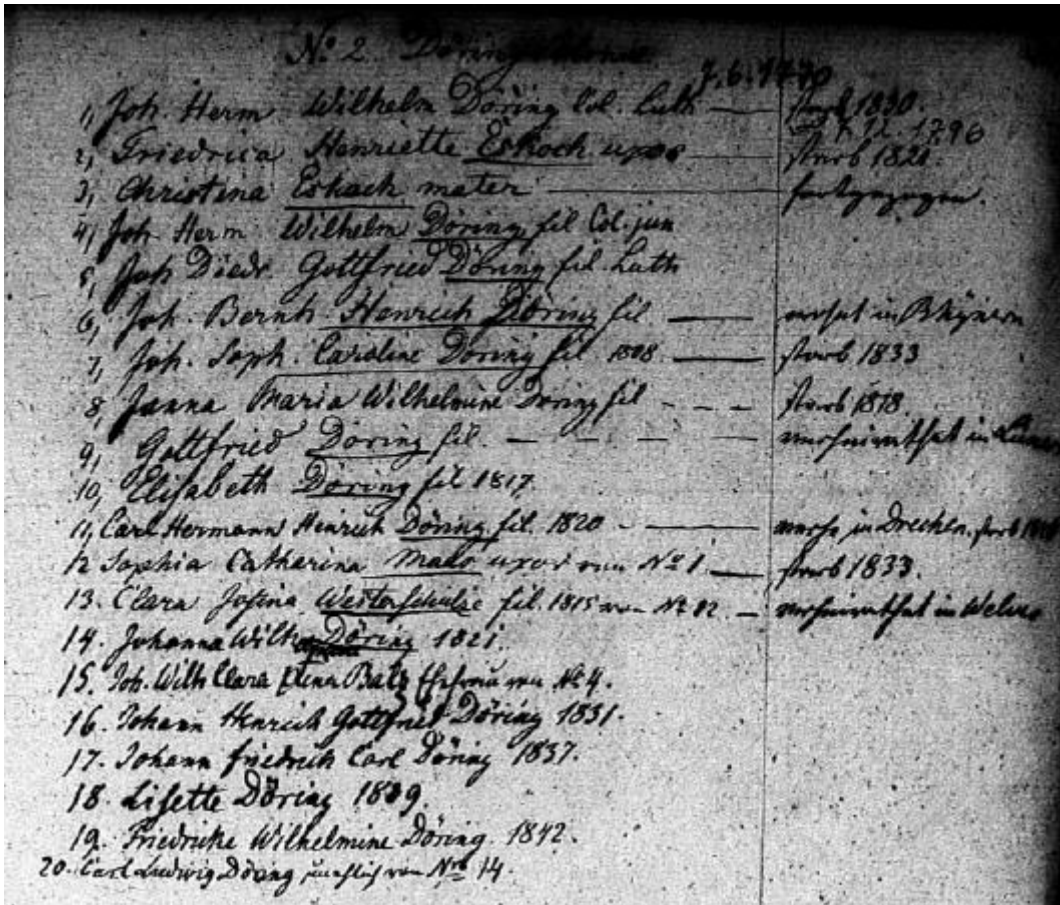 No 2. Döring
7. 6. 1770
1, Joh. Herm Wilhelm Döring Col. Luth — starb 1830.
7. 12. 1796
2, Friedrica Henriette Eshoch uxor — starb 1821.
3, Christina Eshach mater — fortgezogen.
4, Joh. Herm Wilhelm Döring fil Col. jun
5, Joh Diedr Gottfried Döring fil. Luth
6, Joh. Bernh. Henrich Döring fil — wohnt in Rhynern
7, Joh. Soph. Caroline Döring fil. 1808. — starb 1833
8, Janna Maria Wilhelmine Döring fil - - - starb 1818.
9, Gottfried Döring fil. — — — — verheirathet in
10, Elisabeth Döring fil 1817
11, Carl Hermann Heinrich Döring fil. 1820 - — in Drechen. starb
12 Sophia Catharina Malo uxor von No 1. — starb 1833.
13. Clara Josina Westerschulze fil. 1815 von No 12. — verheirathet in Welver
14. Johanna Wilh Döring 1821.
15. Joh. Wilh Clara Batz Ehefrau von No 4.
16. Johann Henrich Gottfried Döring 1831.
17. Johann friedrich Carl Döring 1837.
18. Lisette Döring 1839.
19. Friedricke Wilhelmine Döring. 1842.
20. Carl Ludwig Döring unehlich von Nro 14.